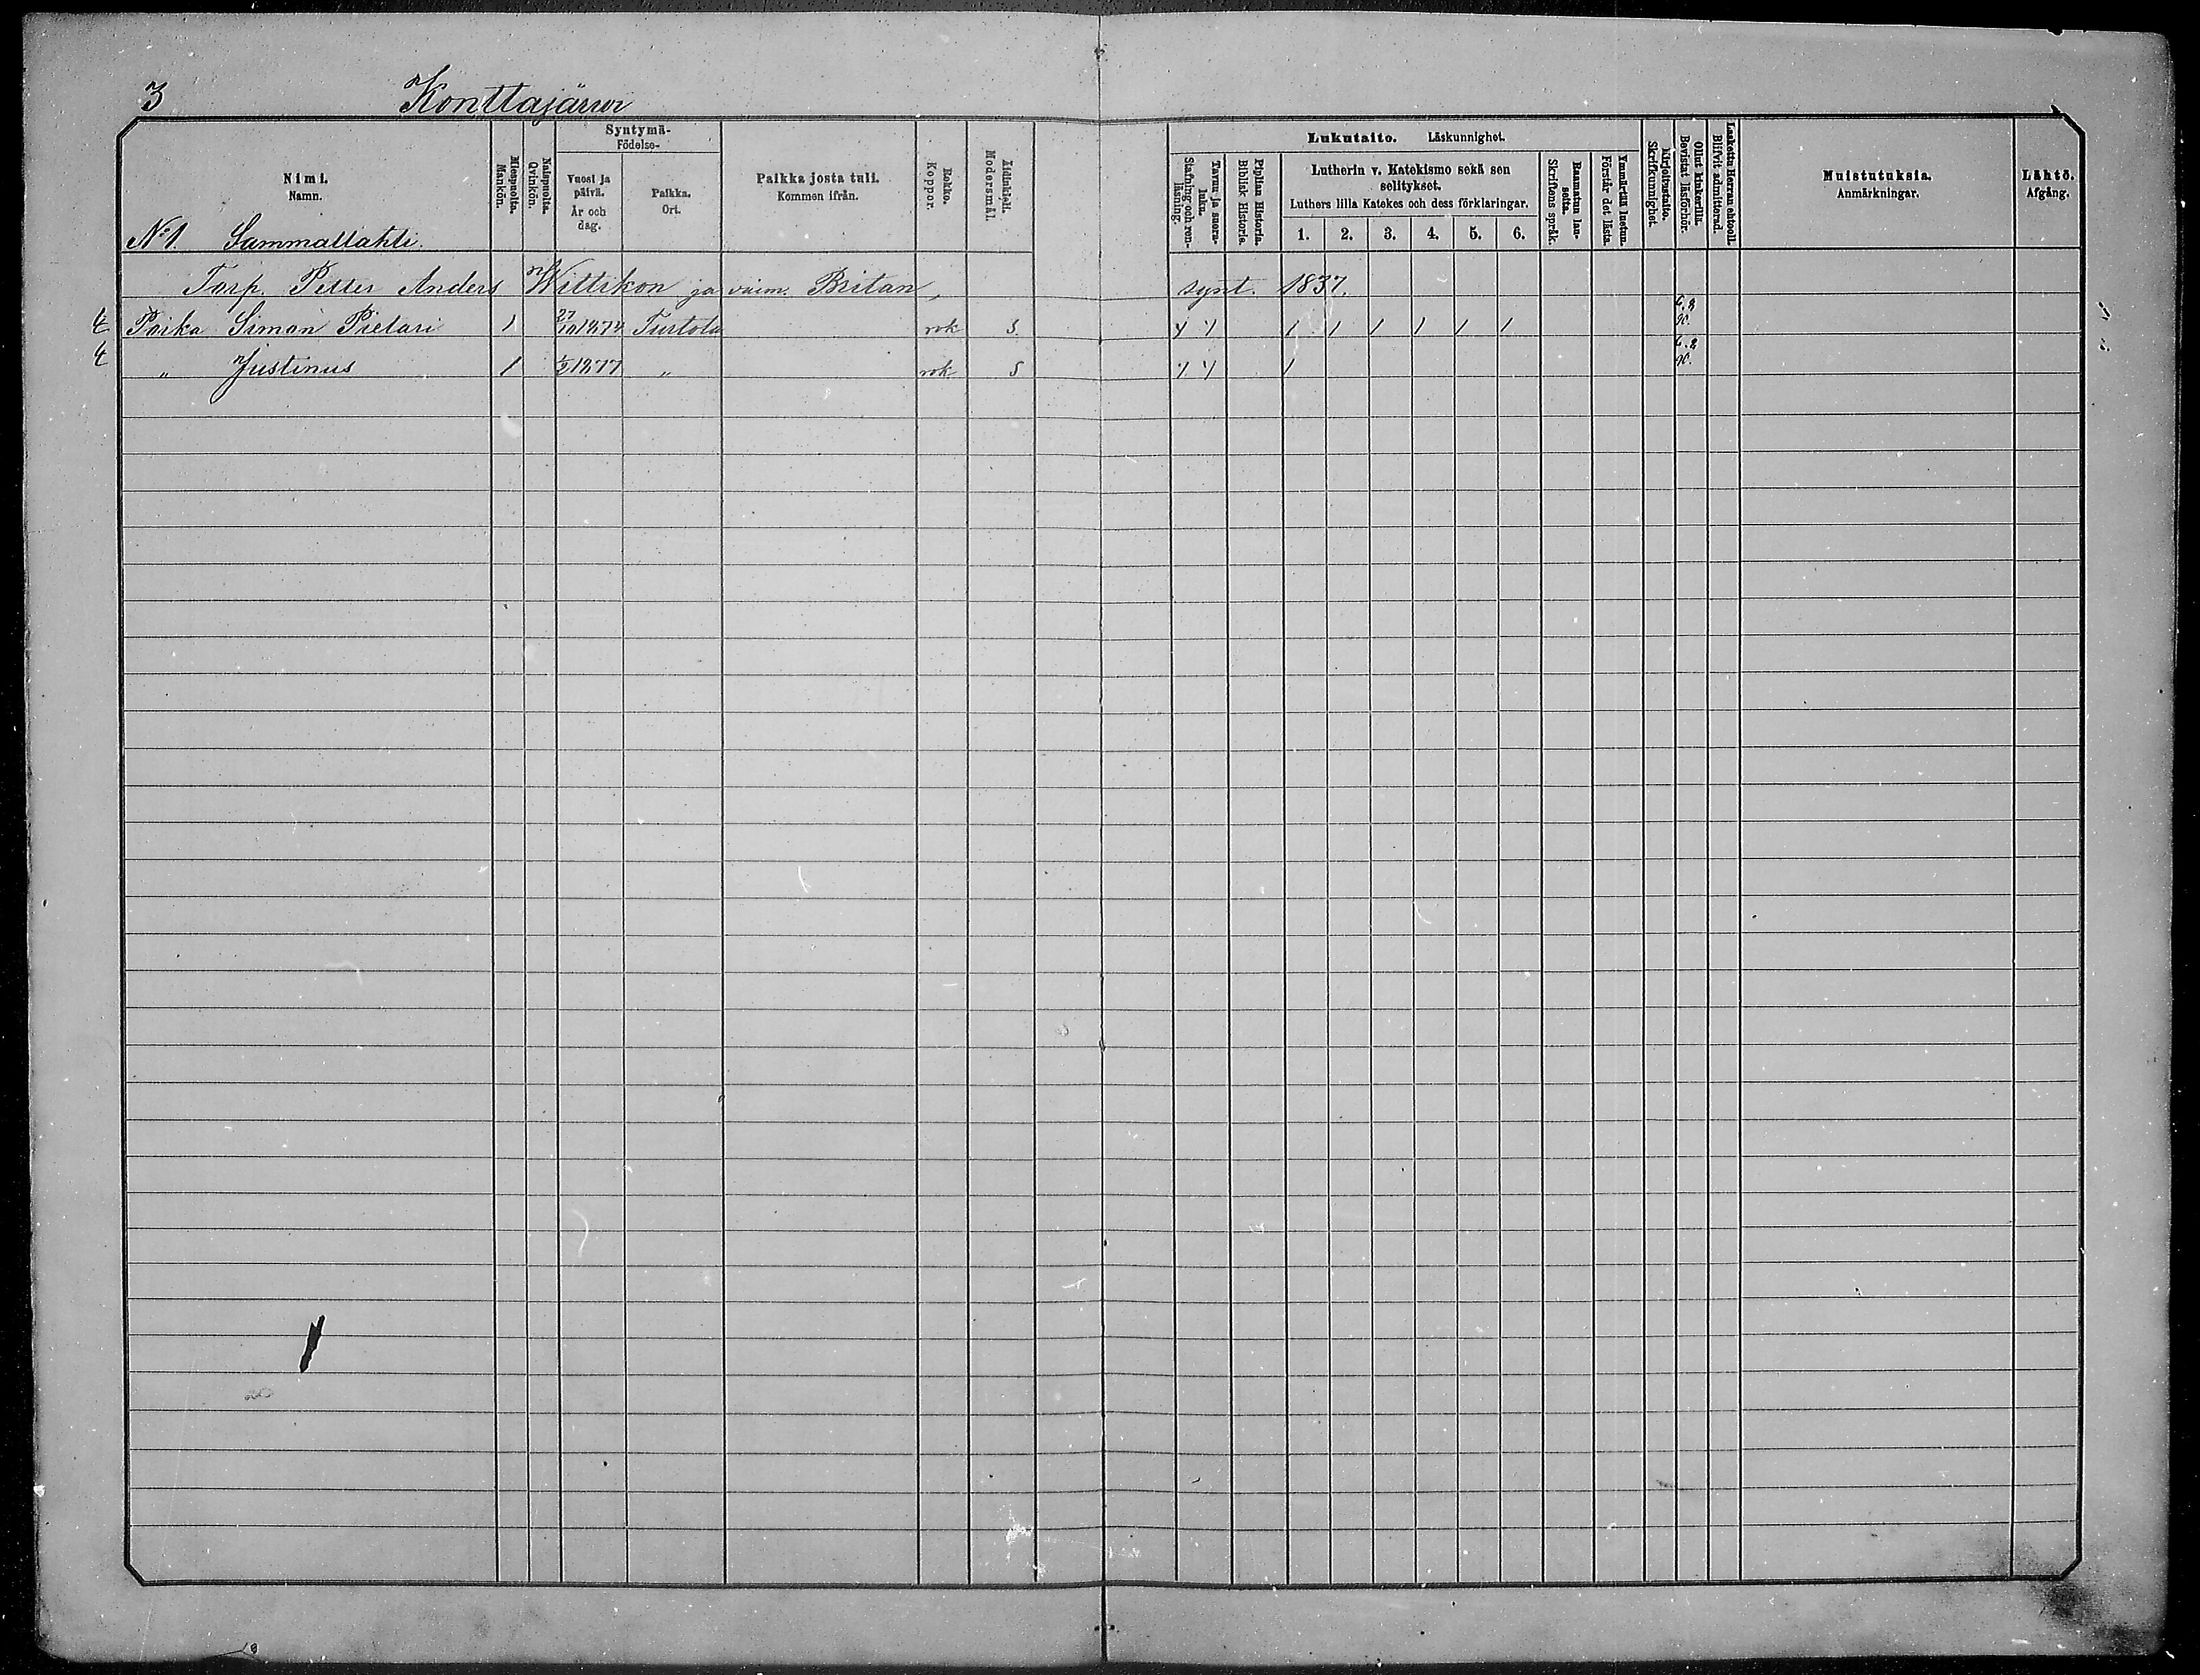 3 Konttajärvi
Syntymä-
Födelse-
Nimi.
Namn.
Miespuolia.
Mankön.
Naispuolia.
Qvinkön.
Vuosi ja päivä.
År och dag.
Paikka.
Ort.
Paikka josta tuli.
Kommen ifrån.
Rokko.
Koppor.
Äidinkieli.
Modersmål.
Lukutaito. Läskunnighet.
Tavuu ja suora-luku.
Stafning och ren-läsning.
Piplian Historia.
Biblisk Historia.
Lutherin v. Katekismo sekä sen selitykset.
Luthers lilla Katekes och dess förklaringar.
1. 2. 3. 4. 5. 6.
Raamatun lau-seita.
Skriftens språk.
Ymmärtää luetun.
Förstår det lästa.
Kirjoitustaito.
Skrifkunnighet.
Ollut kinkerillä.
Bevistat läsförhör.
Laskettu Herran ehtooll.
Blifvit admitterad.
Muistutuksia.
Anmärkningar.
Lähtö.
Afgång.
No 1 Sammallahti.
Torp. Petter Anders Wittikon ja vaim. Britan, synt. 1837.
Poika Simon Pietari 1 27/10 1874 Turtola rok S 1 1 1 1 1 1 6.2 90.
" Justinus 1 1877 " rok S 1 6.2 90.